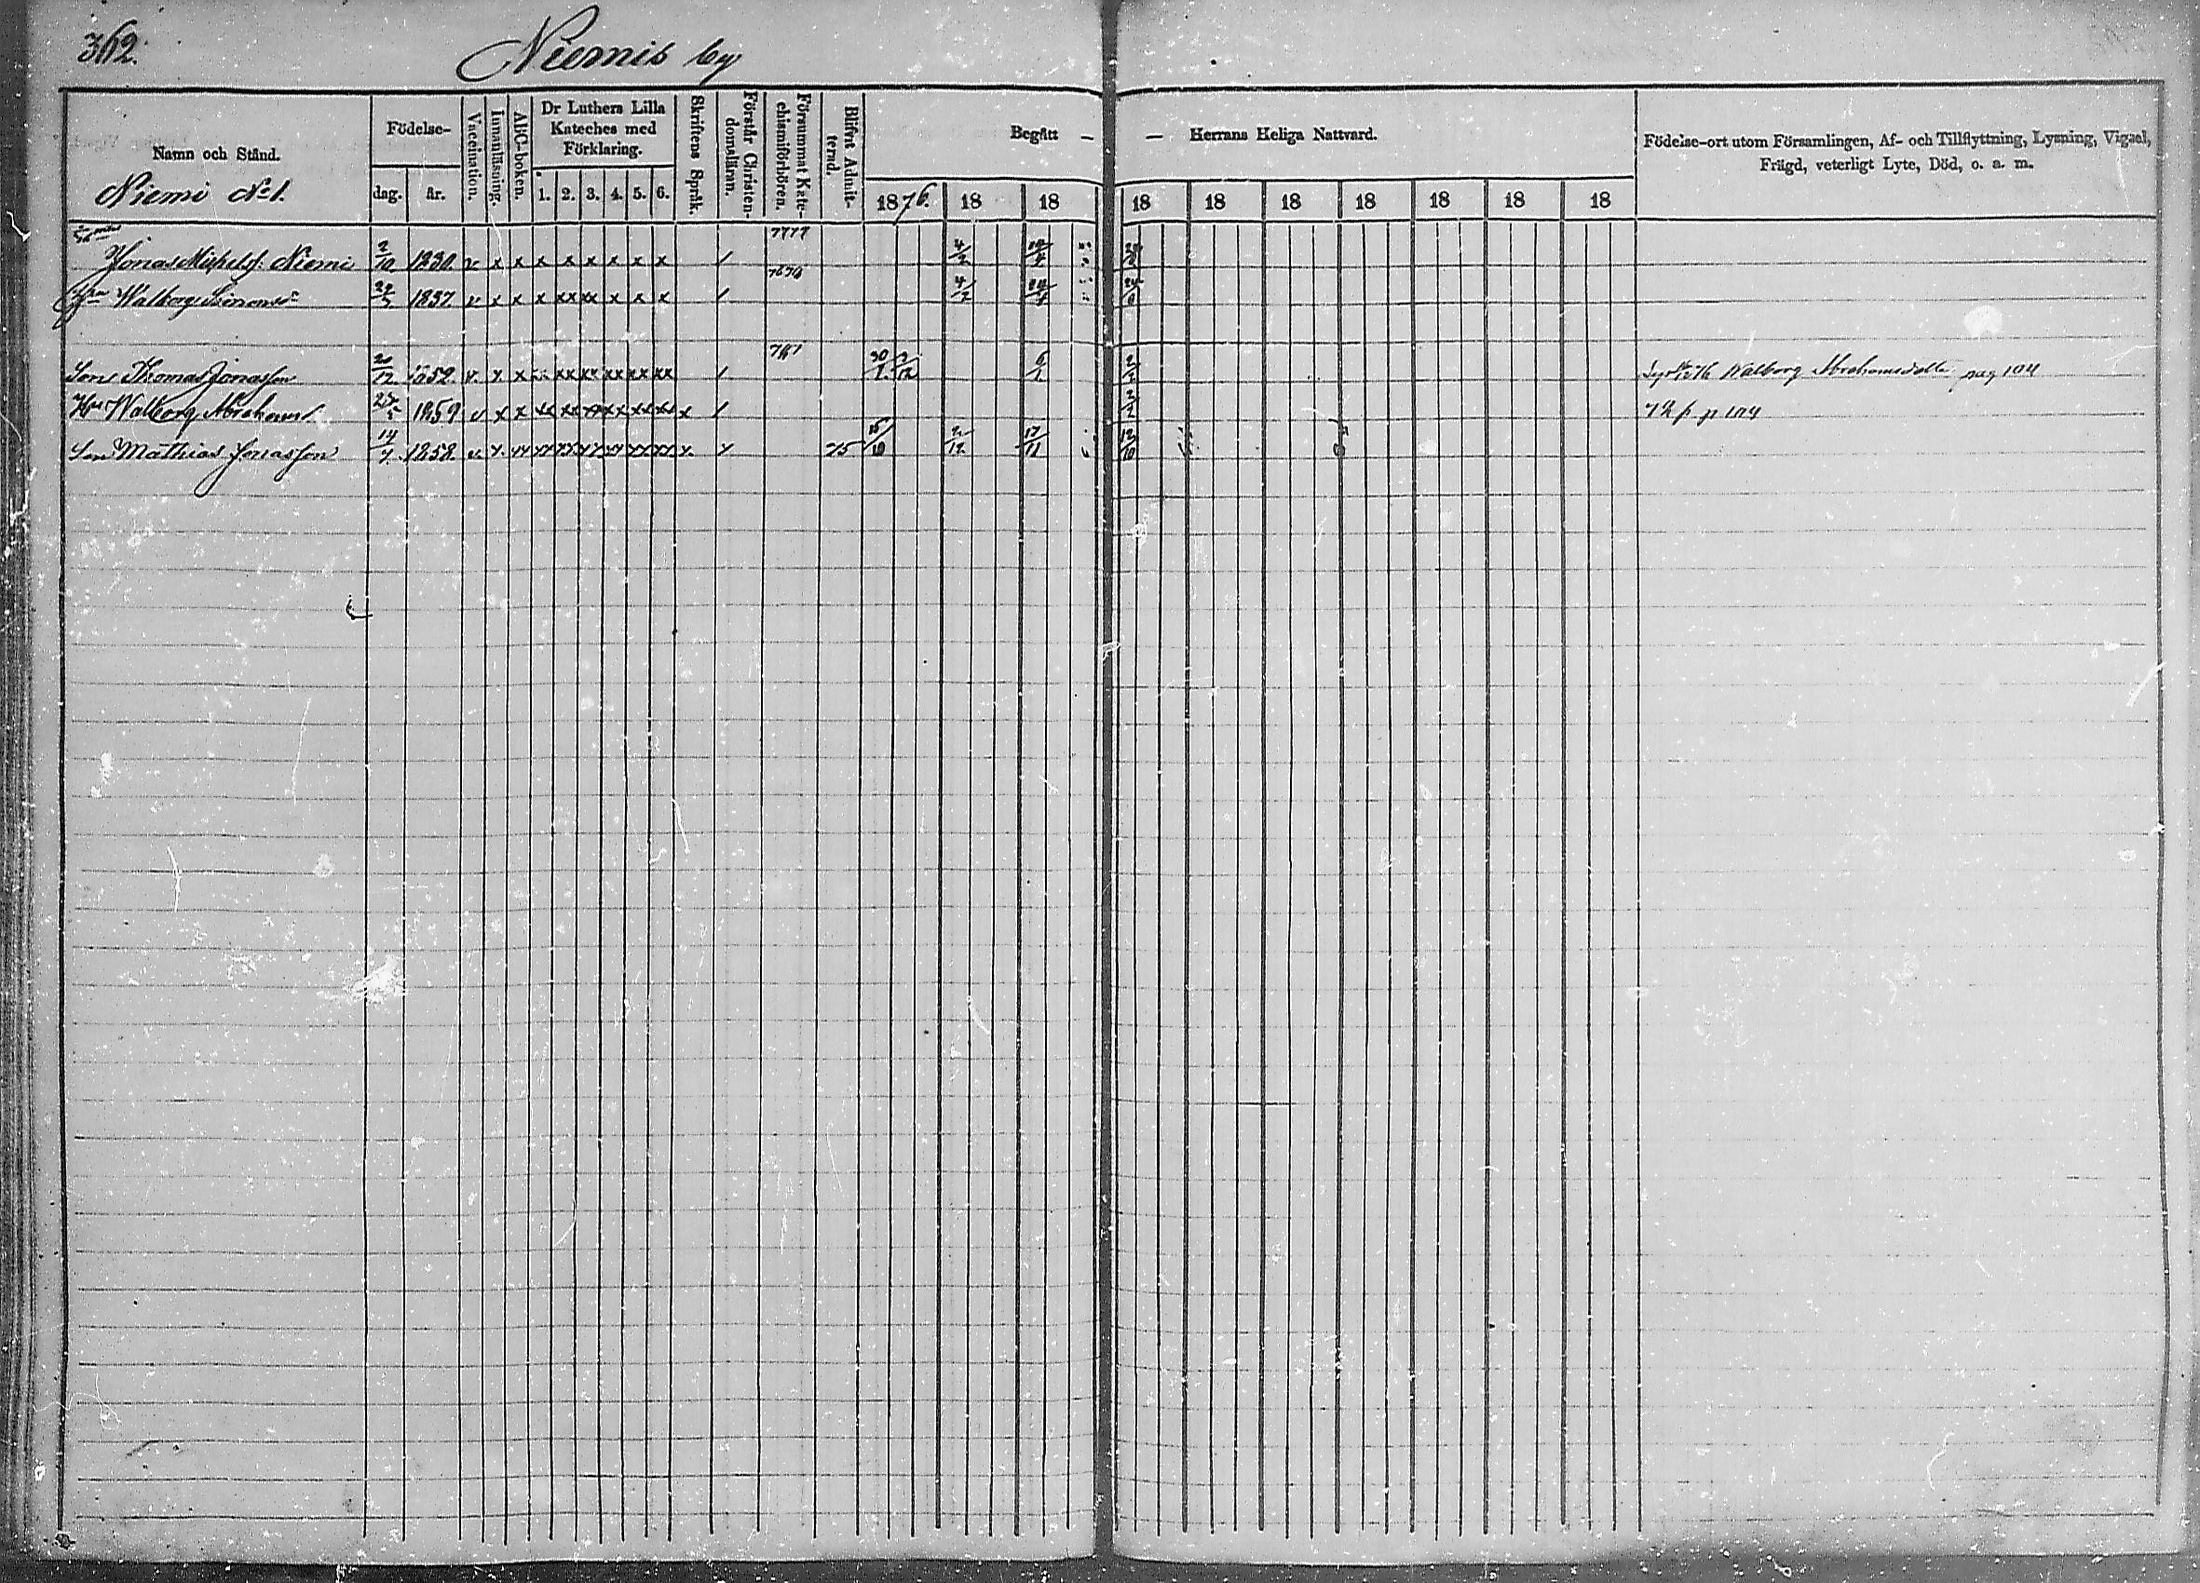 362.
Niemis by
Namn och Stånd.
Niemi No 1.
Födelse-
dag. år.
Vaccination.
Innanläsning.
ABC-boken.
Dr Luthers Lilla Kateches med Förklaring.
1. 2. 3. 4. 5. 6.
Skriftens Språk.
Förstår Christendomsläran.
Försummat Katechismiförhören.
Blifvit Admitterad.
Begått — — Herrans Heliga Nattvard.
1876. 18 18 18 18 18 18 18 18 18
Födelse-ort utom Församlingen, Af- och Tillflyttning, Lysning, Vigsel,
Frägd, veterligt Lyte, Död, o. a. m.
Jonas Michelsf. Niemi 2/10 1830. v x x x x x x x x / 7777 4/2
Walborg Simonsdr 1837. v x x x xx xx x x x / 4/2
Son Thomas Jonasson 20/12 1852. v. x. x xx xx xx xx xx / 2/2 Walborg Abrahamsdotter pag 104
Hu Walborg Abrahamsd. 1859 v x x xx xx xx xx xx xx x / 2/2 p 104
Son Mathias Jonasson 1858. v. x. xx xx xx xx xx xx xx x. x 75 15/10 17/11 12/10